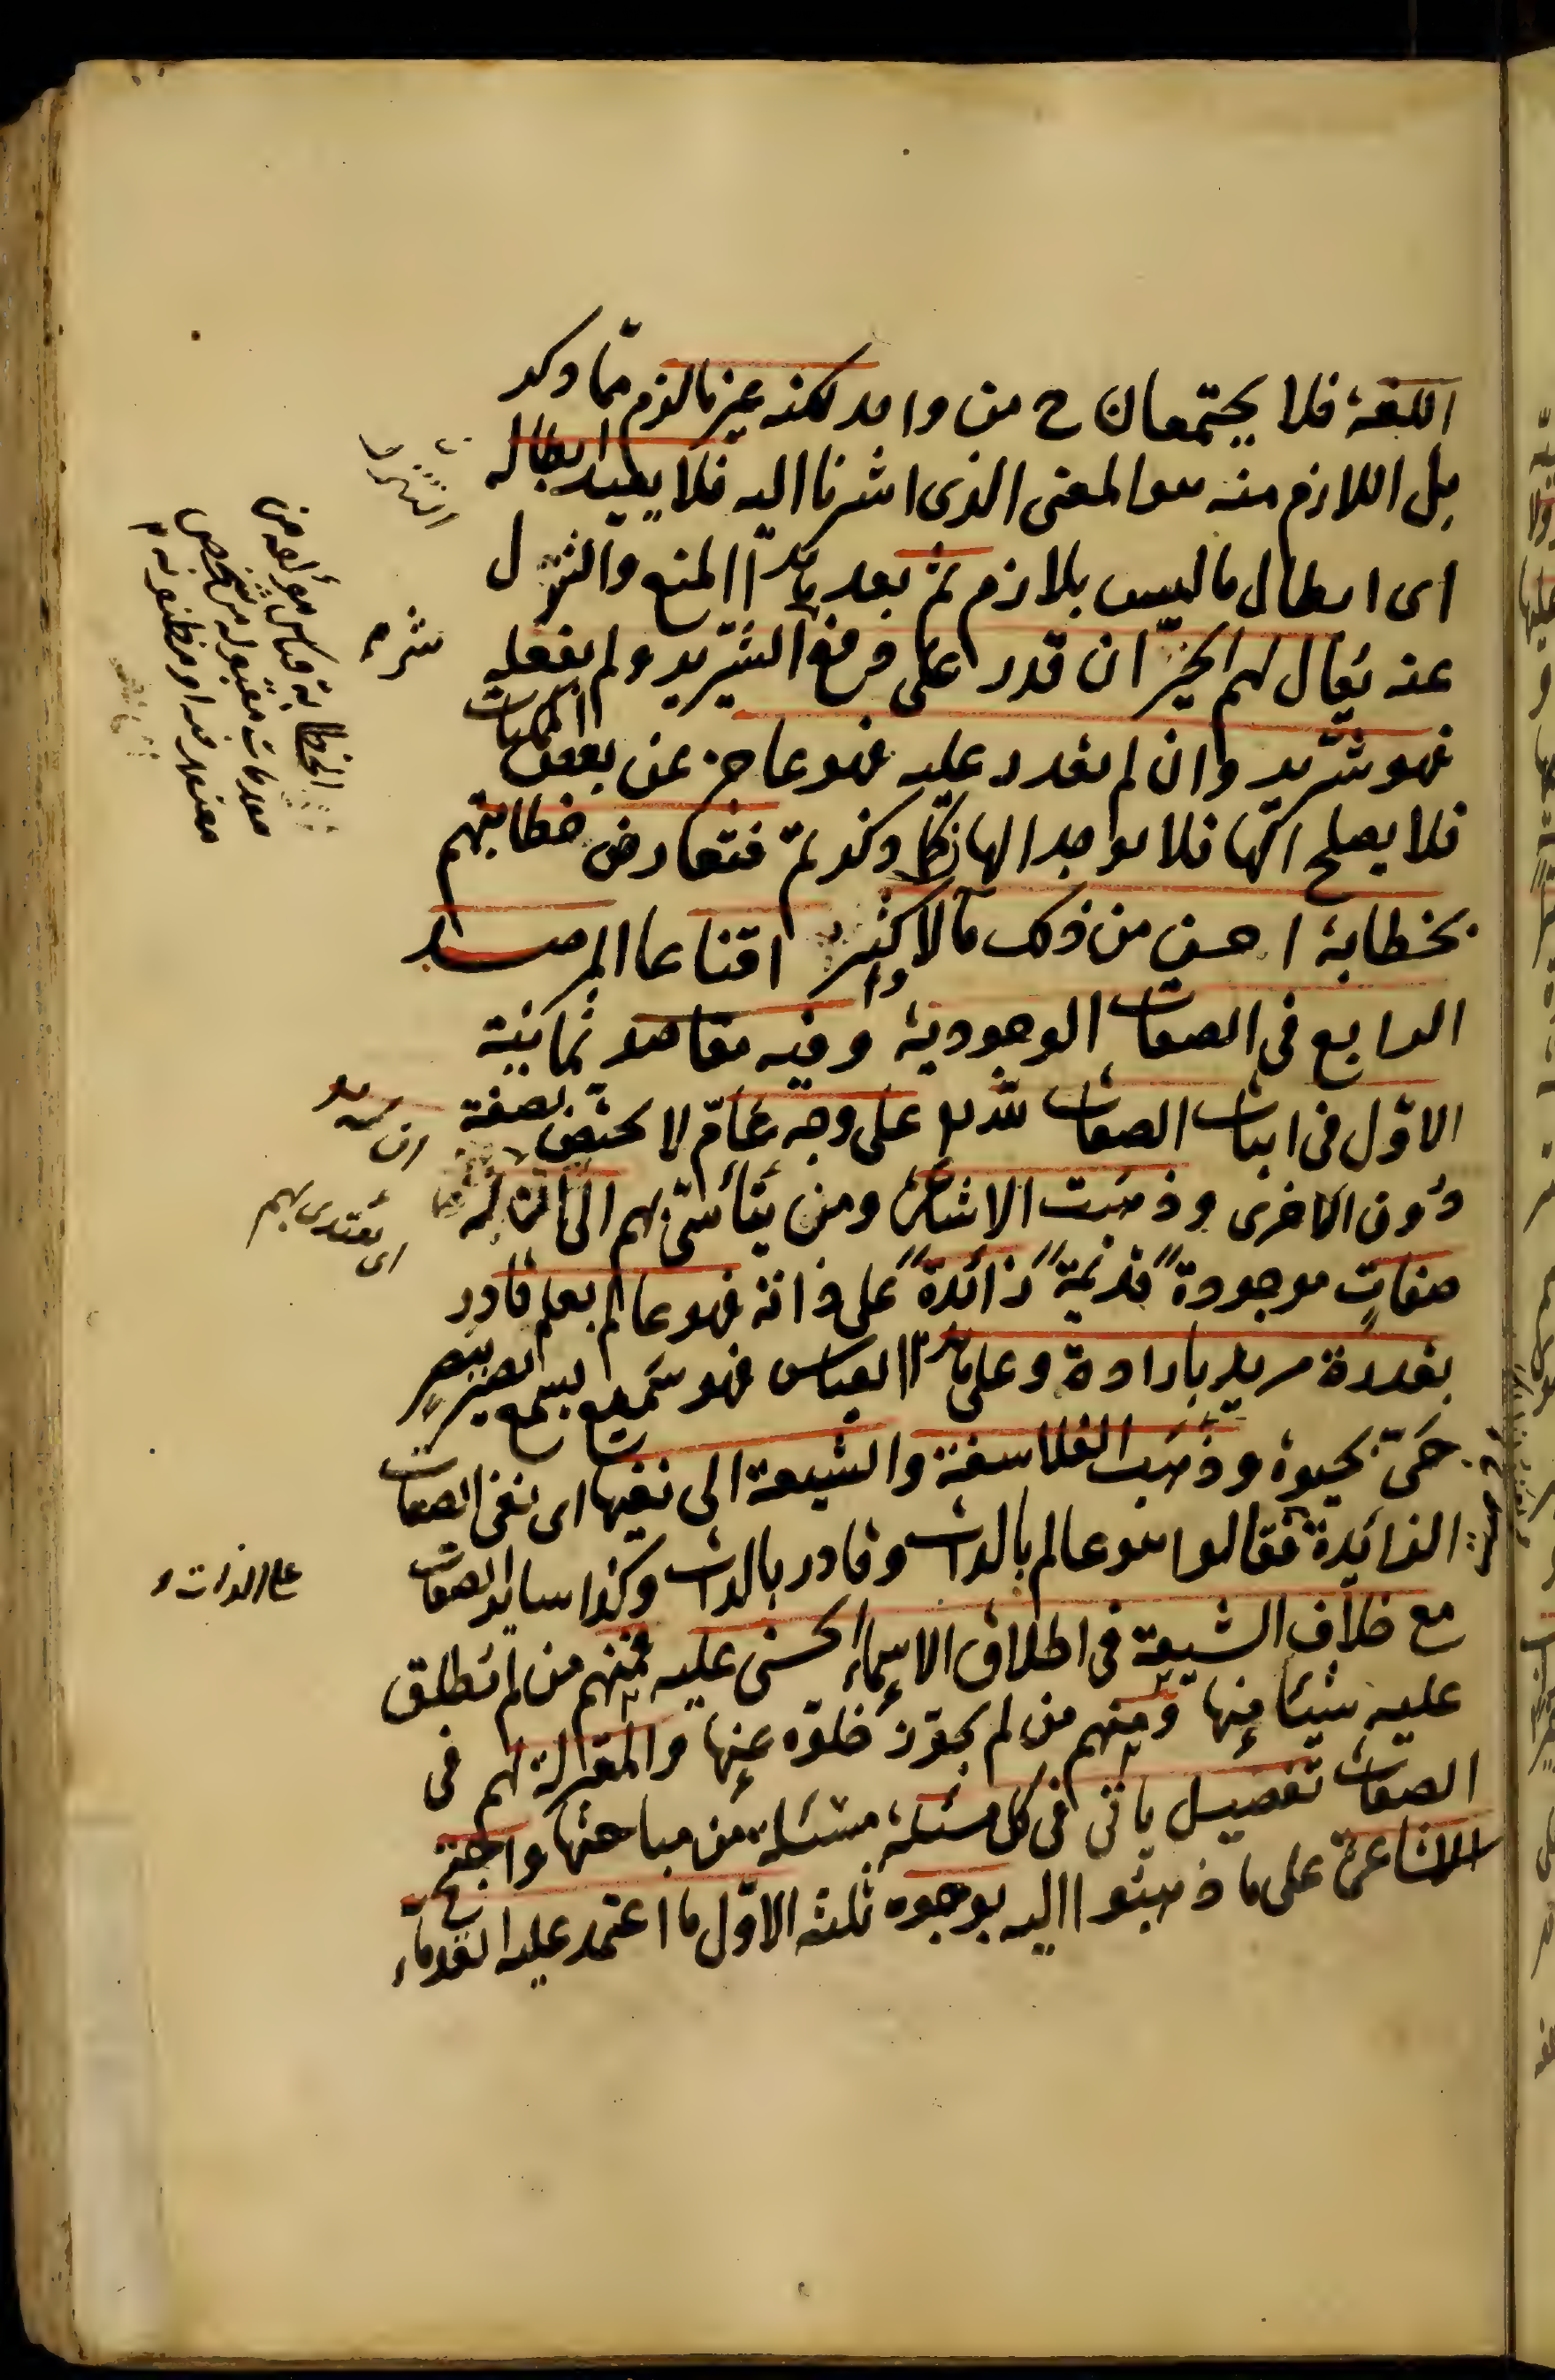 اللغة فلا يجتمعان ح من واحد لكنه غير ما لزم مما ذكر
بل اللازم منه هو المعنى الذى اشرنا اليه فلا يفيد ابطاله
اى ابطال ما ليس بلازم ثم بعد المنع والتنزل
عنه يقال لهم الخير ان قدر على دفع الشرير ولم يفعله
فهو شرير وان لم يقدر عليه فهو عاجز عن بعض الممكنات
فلا يصلح الها فلا يوجد الهان كما ذكرتم فتعارض خطابتهم
بخطابة احسن من ذلك مآلا واكثر اقناعا المرصد
الرابع فى الصفات الوجودية وفيه مقاصد ثمانية
الاول فى اثبات الصفات لله على وجه عام لا يختص بصفة
دون اخرى وذهبت الاشاعرة ومن يتأسى بهم الى ان له
صفات موجودة قديمة زائدة على ذاته فهو عالم بعلم قادر
بقدرة مريد بارادة وعلى هذا القياس فهو سميع بسمع بصير ببصر
حى بحيوة وذهب الفلاسفة والشيعة الى نفيها اى نفى الصفات
الزائدة فقالوا هو عالم بالذات وقادر بالذات وكذا سائر الصفات
مع خلاف الشيعة فى اطلاق الاسماء الحسنى عليه فمنهم من لم يطلق
عليه شيئا منها ومنهم من لم يجوز خلوه عنها والمعتزلة لهم فى
الصفات تفصيل يأتى فى كل مسئلة مسئلة من مباحثها واحتج
الاشاعرة على ما ذهبوا اليه بوجوه ثلثة الاول ما اعتمد عليه القدماء
الخطابة قياس مؤلف من
مقدمات مقبولة من شخص
معتقد فيه او مظنونة
اى يقتدى بهم
على الذات